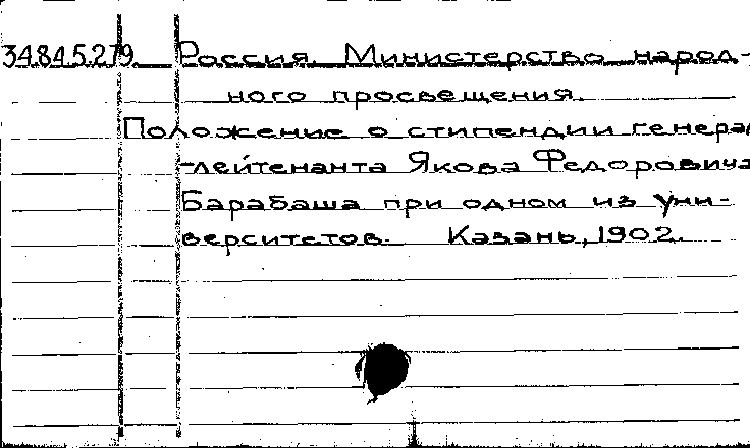 34.84.5.279 Россия. Министерство народ-
ного просвещения.
Положение о стипендии генерал
-лейтенанта Якова Федоровича
Барабаша при одном из уни-
верситетов. Казань, 1902.